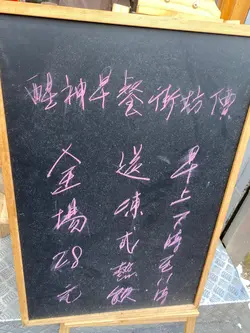 醒神早餐街坊價
早上7時至11時
送凍或熱飲
全場28元